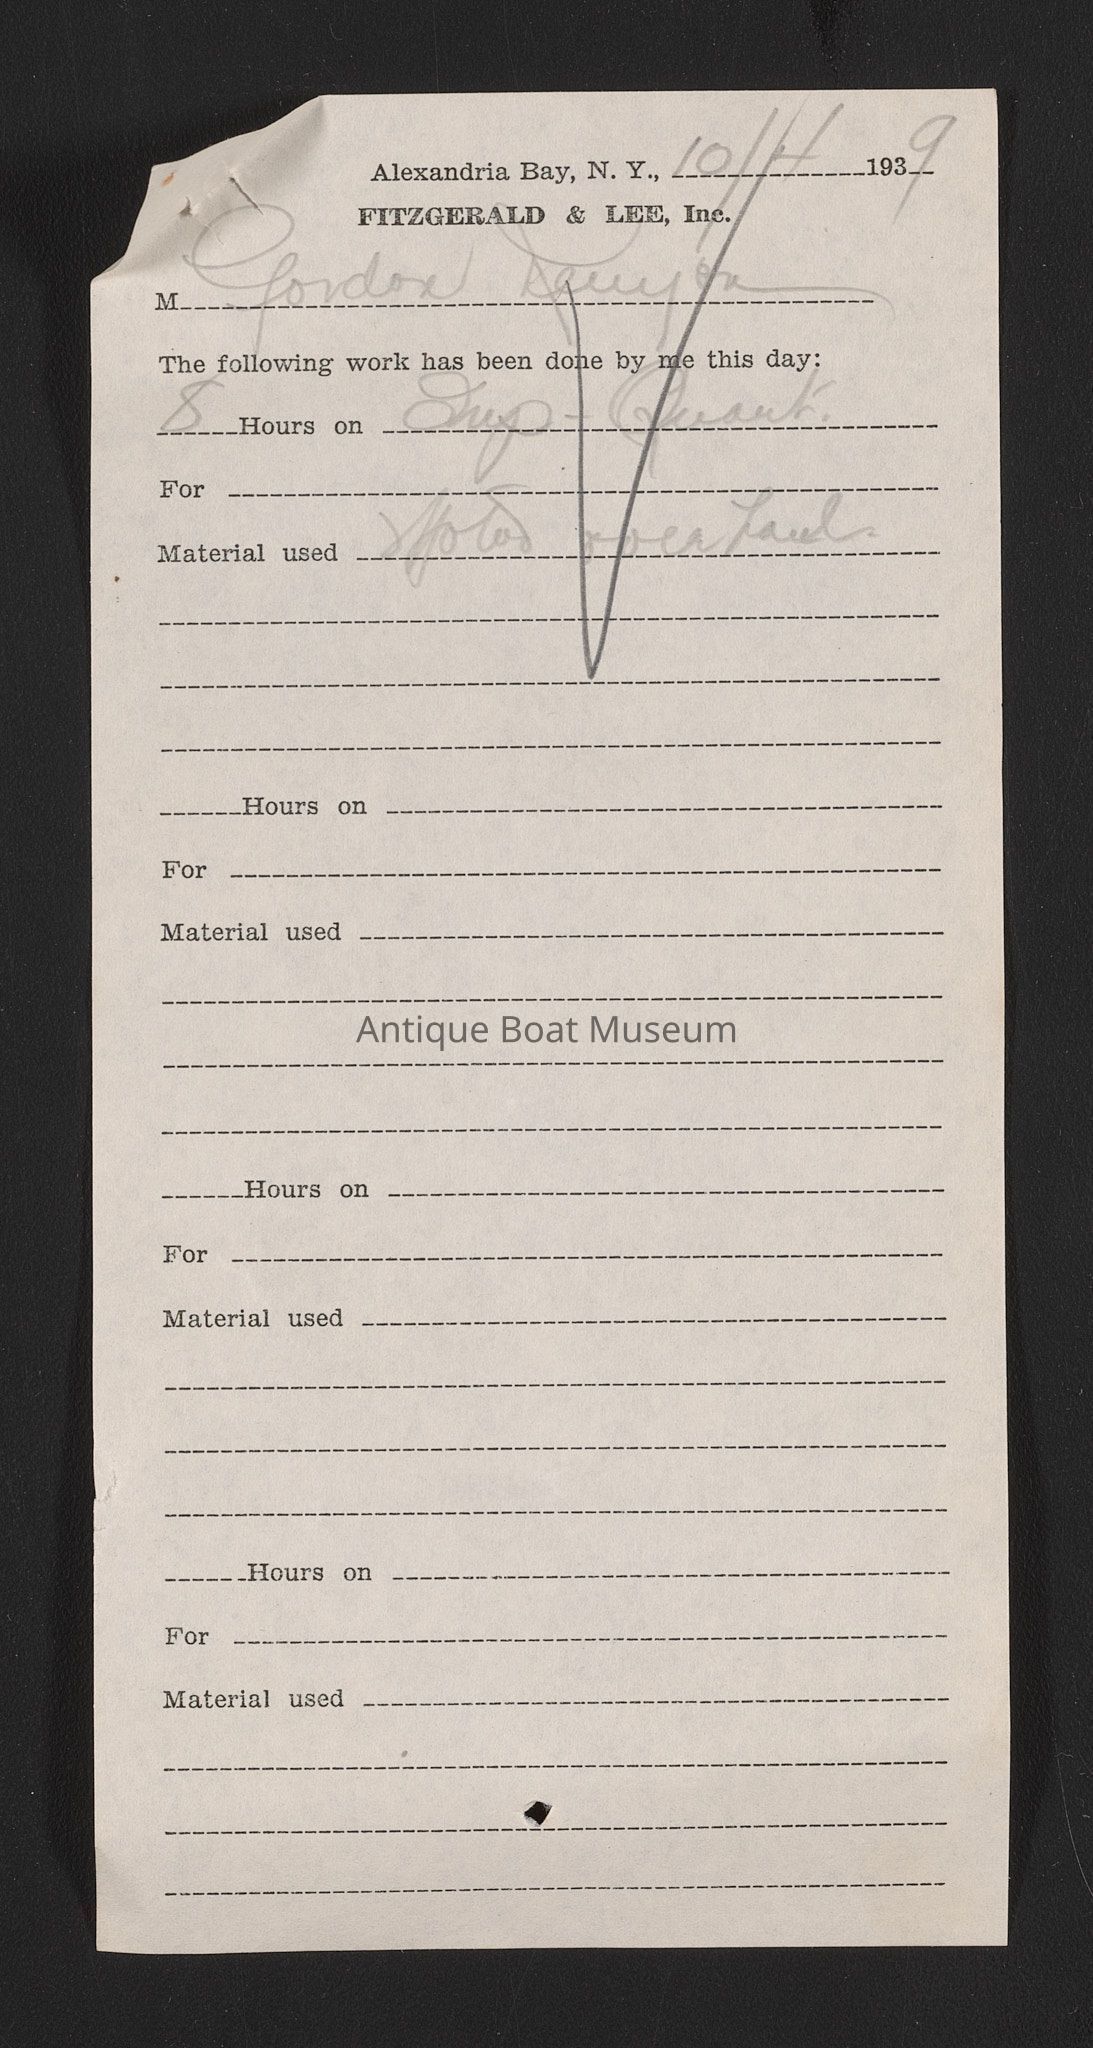 Alexandria Bay, N. Y., 10/4 1939
FITZGERALD & LEE, Inc.
M Gordon
The following work has been done by me this day:
8 Hours on Imp -
For
Material used Motor overhaul
Hours on
For
Material used
Antique Boat Museum
Hours on
For
Material used
Hours on
For
Material used